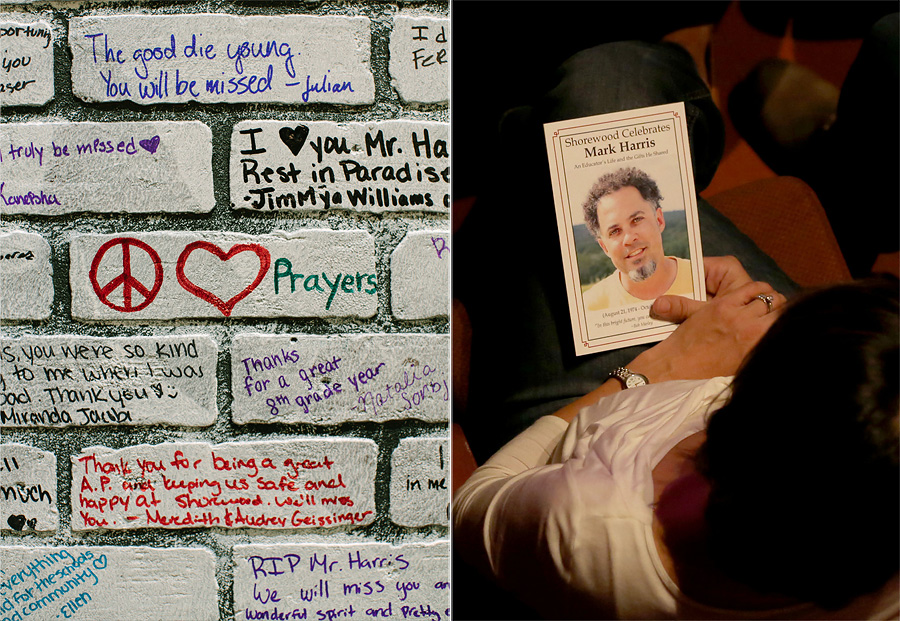 you
The good die young.
You will be missed - Julian
I d
truly be missed
Kaneisha
I you Mr. Ha
Rest in Paradise
-JimMya Williams
Prayers
you were so kind
to me when I was
Thank you
Miranda
Thanks
for a great
8th grade year
Natalia
much
Thank you for being a great
A.P. and keeping us safe and
happy at Shorewood. We'll miss
You. - Meredith & Audrey Geissinger
I
in me
everything
for the schools
community
- Ellen
RIP Mr. Harris
We will miss you an
wonderful spirit and pretty
Shorewood Celebrates
Mark Harris
An Educator's Life and the Gifts He Shared
(August 21, 1974 - Oct
"In the bright